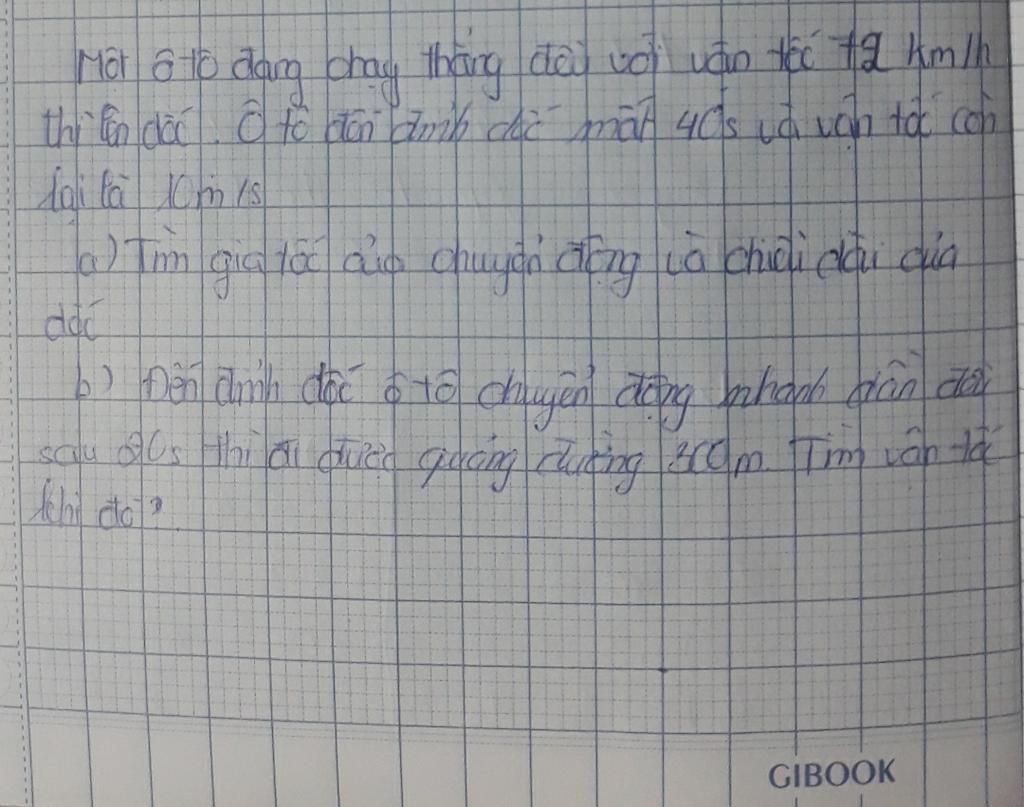 Một ô tô đang chạy thẳng đều với vận tốc 72 km/h
thì lên dốc. Ô tô đến đỉnh dốc mất 40s và vận tốc còn
lại là 10m/s
a) Tìm gia tốc của chuyển động và chiều dài của
dốc
b) Đến đỉnh dốc ô tô chuyển động nhanh dần đều
sau 20s thì đi được quãng đường 300m. Tìm vận tốc
khi đó?
GIBOOK